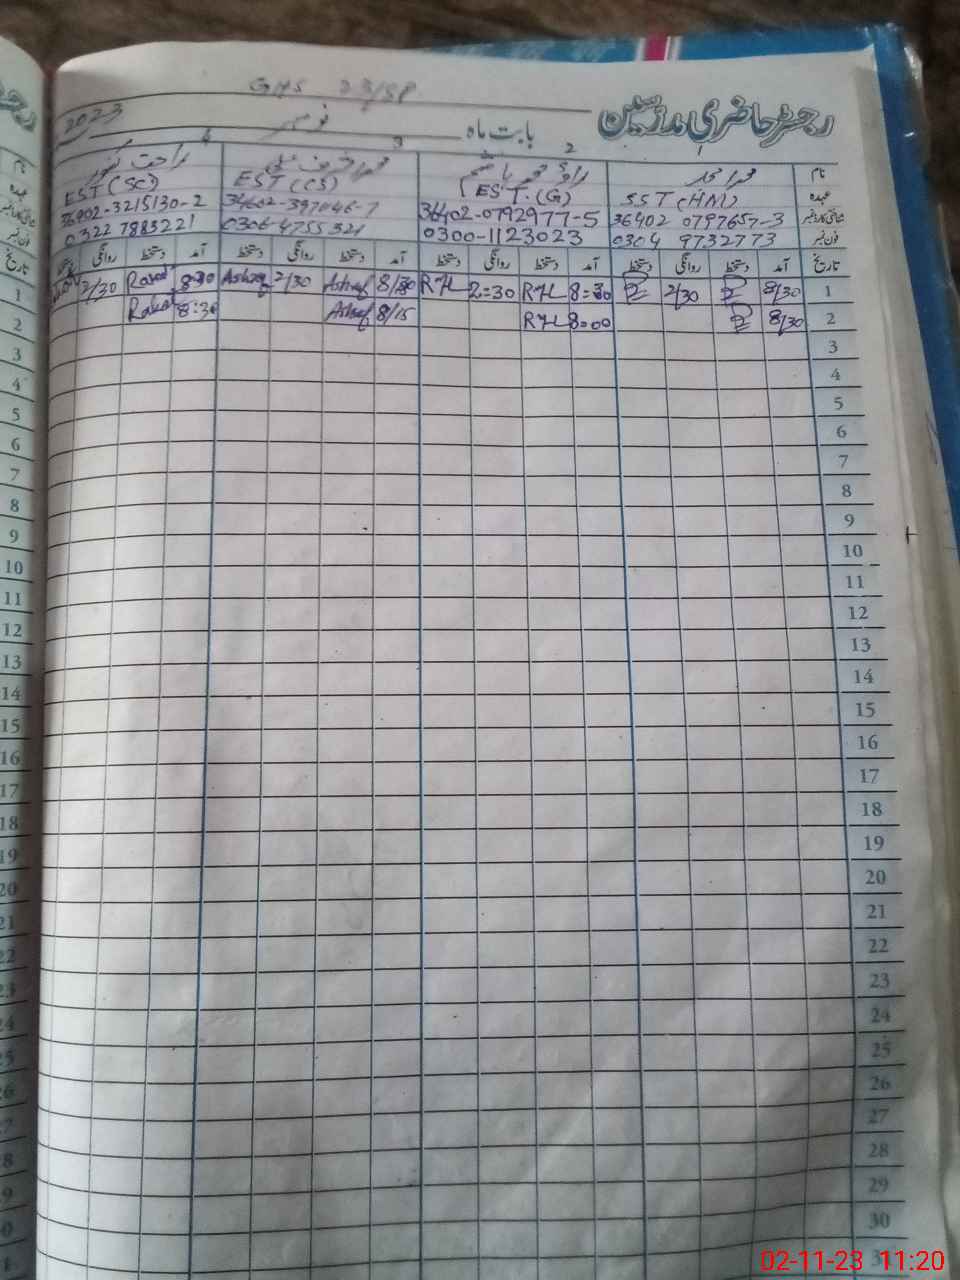 GHS 23/SP
رجسٹر حاضری مدرسین
بابت ماہ نومبر 2023
1 2 3 4
نام محمد امجد
عہدہ SST (HM) EST. (G) EST (CS) EST (SC)
شناختی کارڈ نمبر 36402 0797657-3 36402-0792977-5 36402-3215130-2
فون نمبر 0304 9732773 0300-1123023 0306-4755321 0322 7883221
تاریخ آمد دستخط روانگی دستخط آمد دستخط روانگی دستخط آمد دستخط روانگی دستخط آمد دستخط روانگی دستخط
1 8/30 2/30 8=30 RHL 2=30 RHL 8/30 Ashraf 2/30 Ashraf 8:30 2/30
2 8/30 8=00 RHL 8/15 Ashraf 8:30
3
4
5
6
7
8
9
10
11
12
13
14
15
16
17
18
19
20
21
22
23
24
25
26
27
28
29
30
02-11-23 11:20